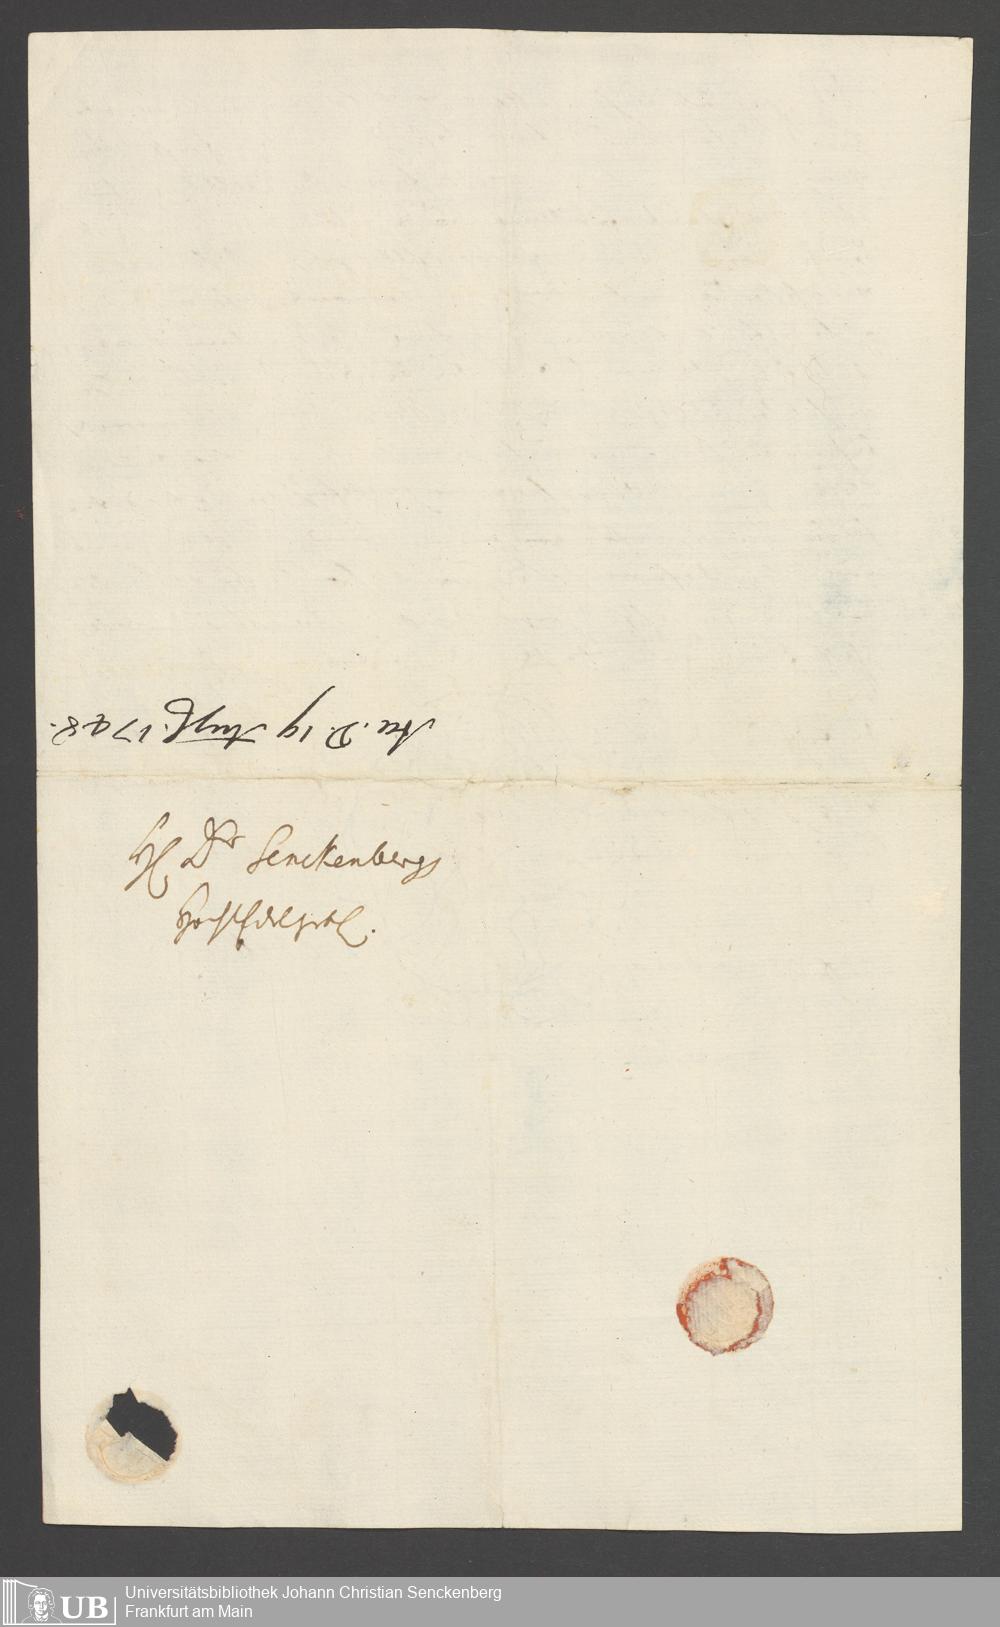 Acc. D. 19 Aug. 1748.
H. Dr Senckenbergs
HochEdelgebl.
Universitätsbibliothek Johann Christian Senckenberg
Frankfurt am Main
UB